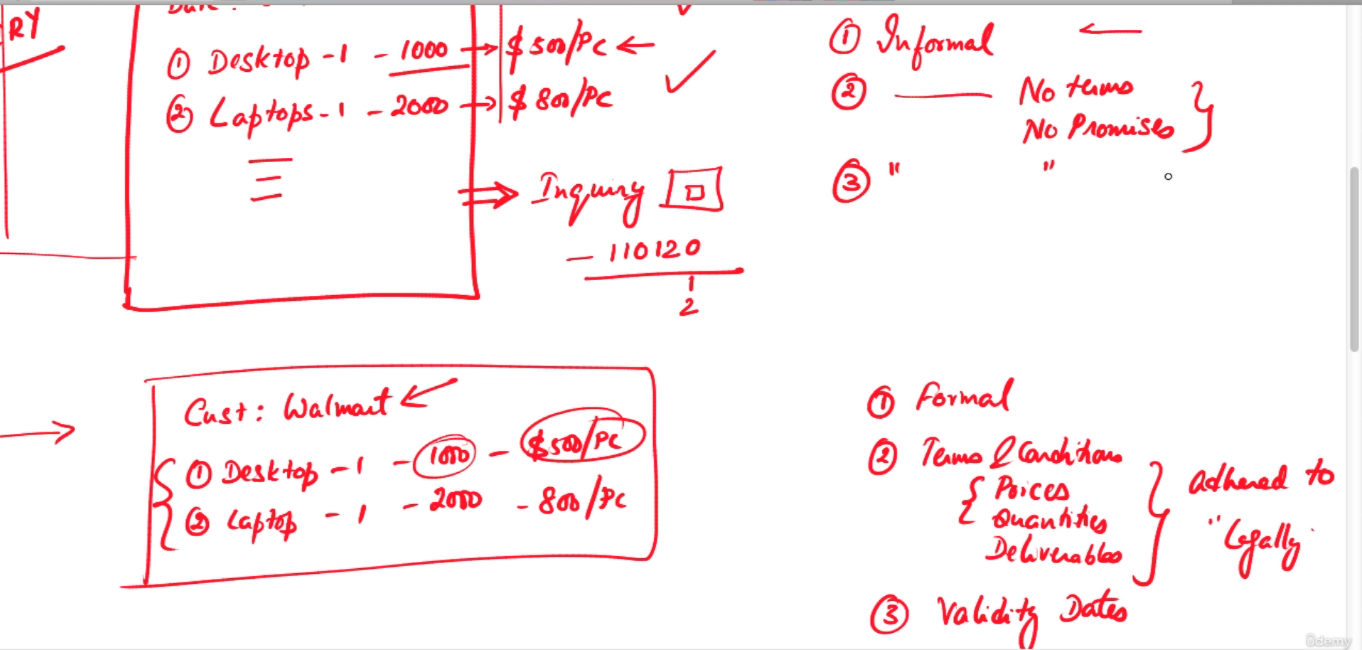 RY
Date :
① Desktop - 1 - 1000 → $500/PC ←
② Laptops - 1 - 2000 → $800/PC
⇒ Inquiry
- 110120
1
2
① Informal ←
② ——— No terms
No Promises
③ " "
→
Cust: Walmart ←
① Desktop - 1 - 1000 - $500/PC
② Laptop - 1 - 2000 - 800/PC
① Formal
② Terms & Conditions
Prices
Quantities
Deliverables
adhered to
"Legally
③ Validity Dates
ûdemy